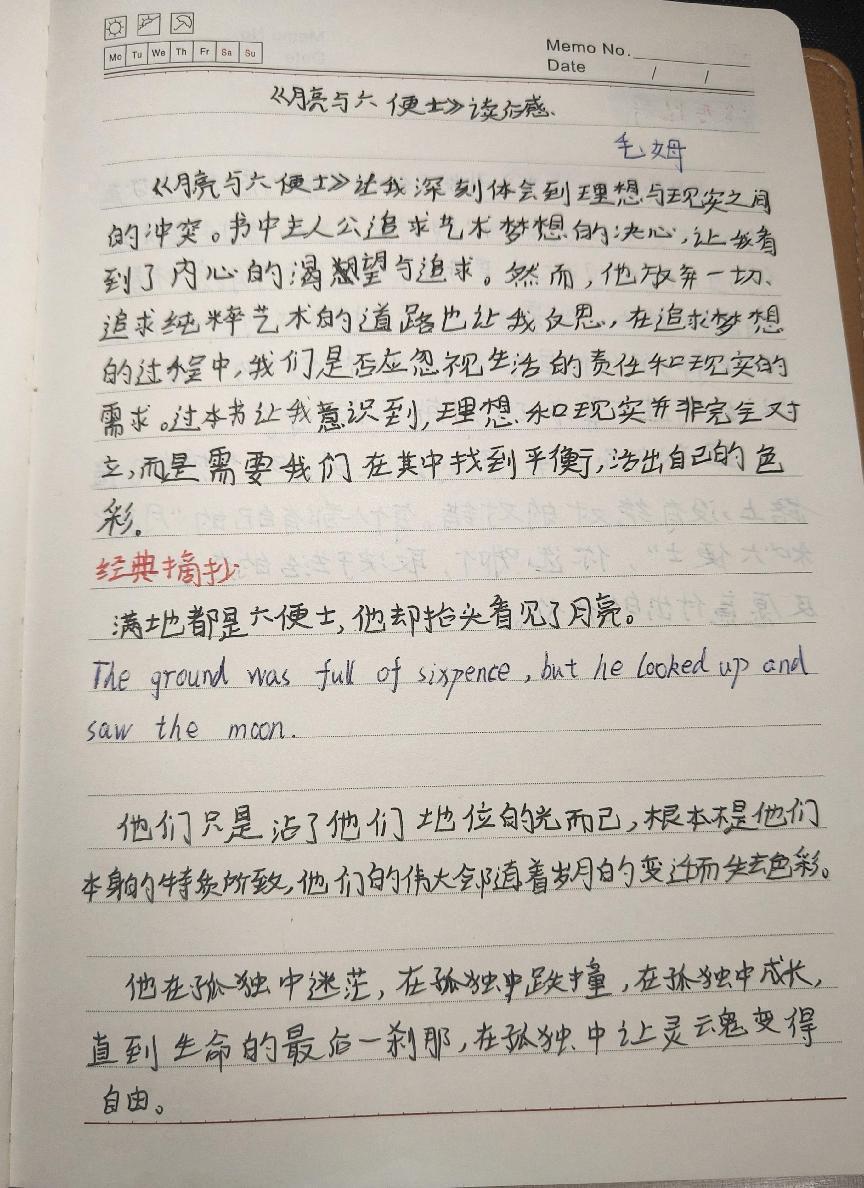 Mo Tu We Th Fr Sa Su
Memo No.
Date / /
《月亮与六便士》读后感.
毛姆
《月亮与六便士》让我深刻体会到理想与现实之间
的冲突。书中主人公追求艺术梦想的决心,让我看
到了内心的渴望与追求。然而,他放弃一切、
追求纯粹艺术的道路也让我反思,在追求梦想
的过程中,我们是否应忽视生活的责任和现实的
需求。这本书让我意识到,理想和现实并非完全对
立,而是需要我们在其中找到平衡,活出自己的色
彩。
经典摘抄
满地都是六便士,他却抬头看见了月亮。
The ground was full of sixpence, but he looked up and
saw the moon.
他们只是沾了他们地位的光而已,根本不是他们
本身的特质所致,他们的伟大会随着岁月的变迁而失去色彩。
他在孤独中迷茫,在孤独中跌撞,在孤独中成长,
直到生命的最后一刹那,在孤独中让灵魂变得
自由。